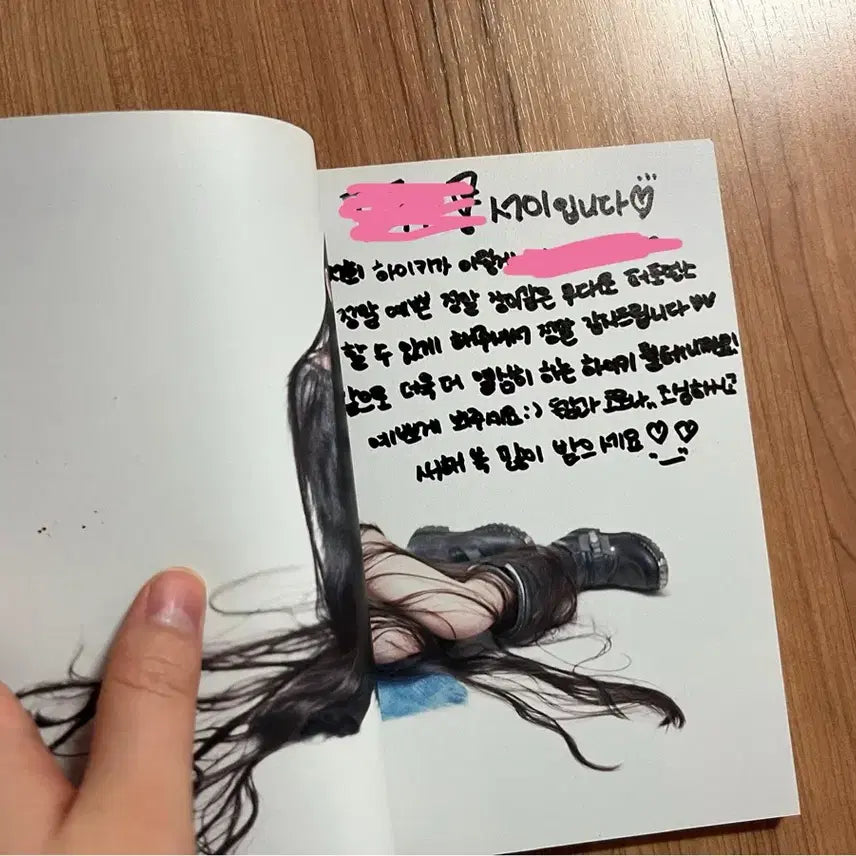 서이입니다♡
저희 하이키가 이렇게
정말 예쁜 정말 장미같은
할 수 있게 해주셔서 정말 감사드립니다♡♡
앞으로 더욱 더 열심히 하는 하이키 될테니까요!
예쁘게 봐주세요:) 독감과 코로나.. 조심하시고
새해 복 많이 받으세요♡♡